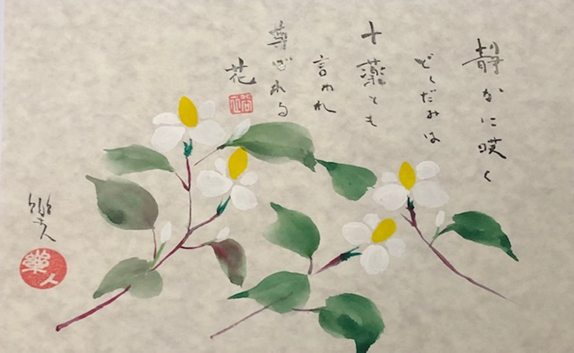 静かに咲く
どくだみは
十薬とも
言われ
尊ばれる
花
楽人
樂人